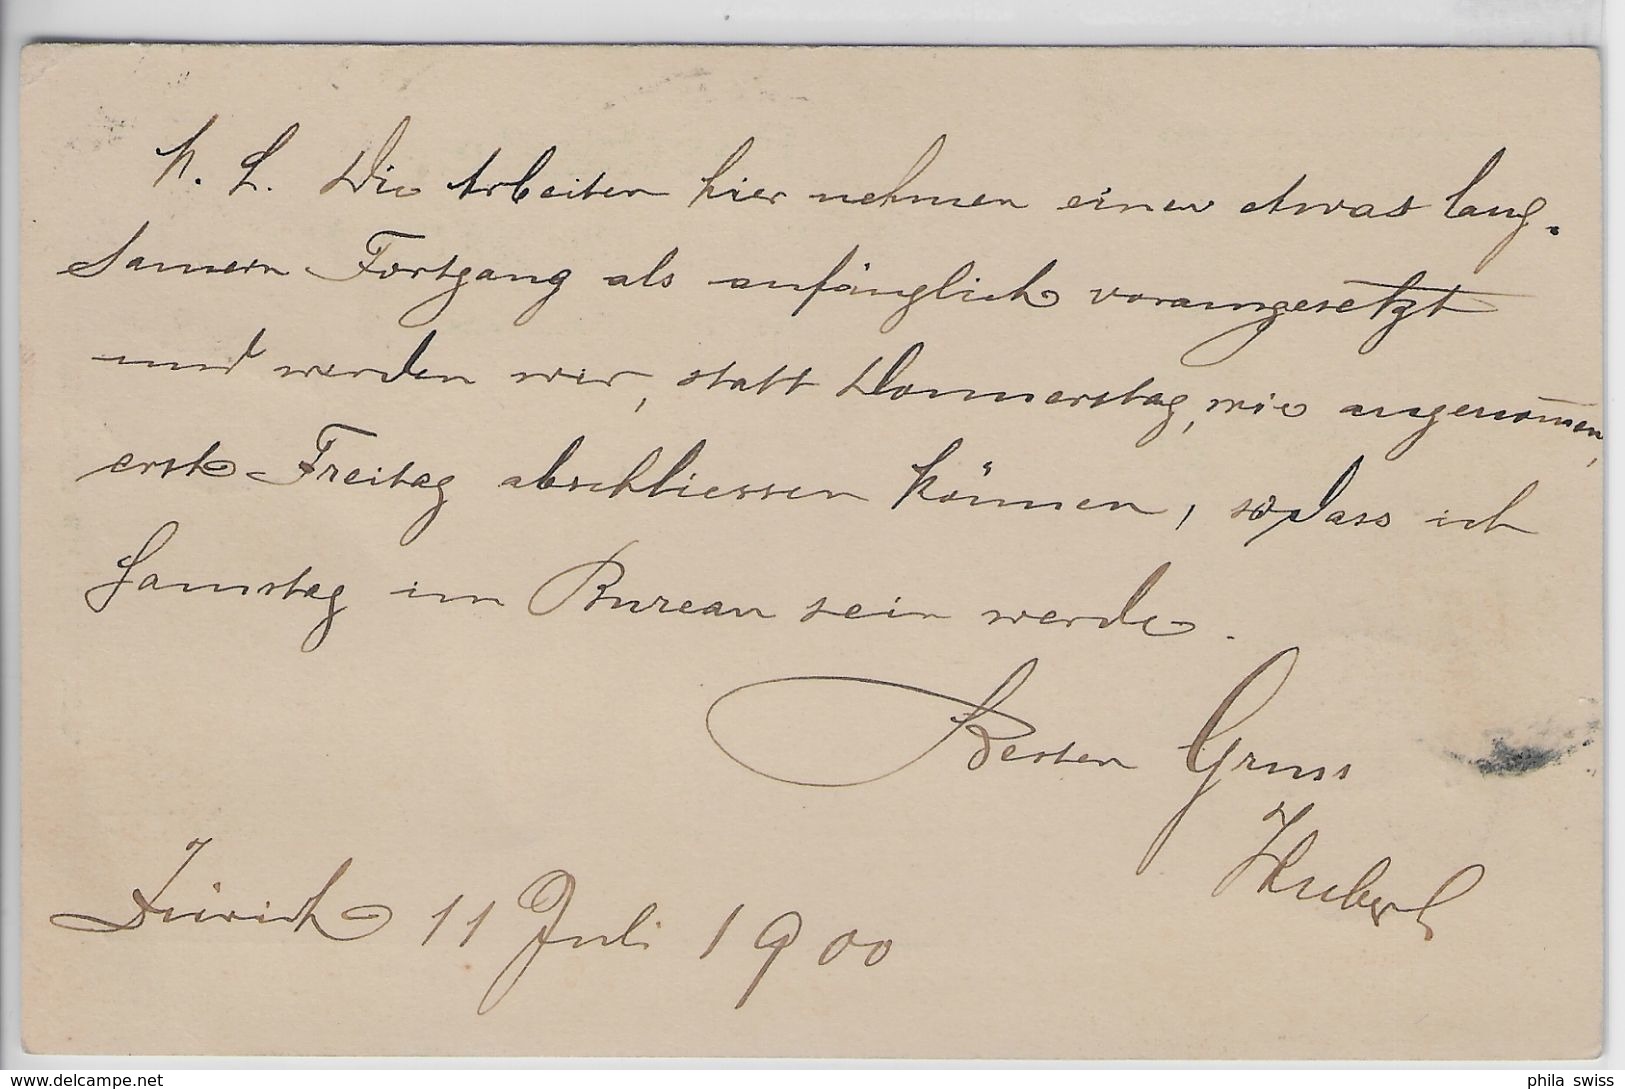 K. L. Die Arbeiten hier nehmen einen etwas lang-
samern Fortgang als anfänglich vorausgesetzt
und werden wir, statt Donnerstag, wie angenom̄en,
erst Freitag abschliessen können, sodass ich
Samstag im Bureau sein werde.
Besten Gruss
Zürich 11 Juli 1900
delcampe.net
phila_swiss